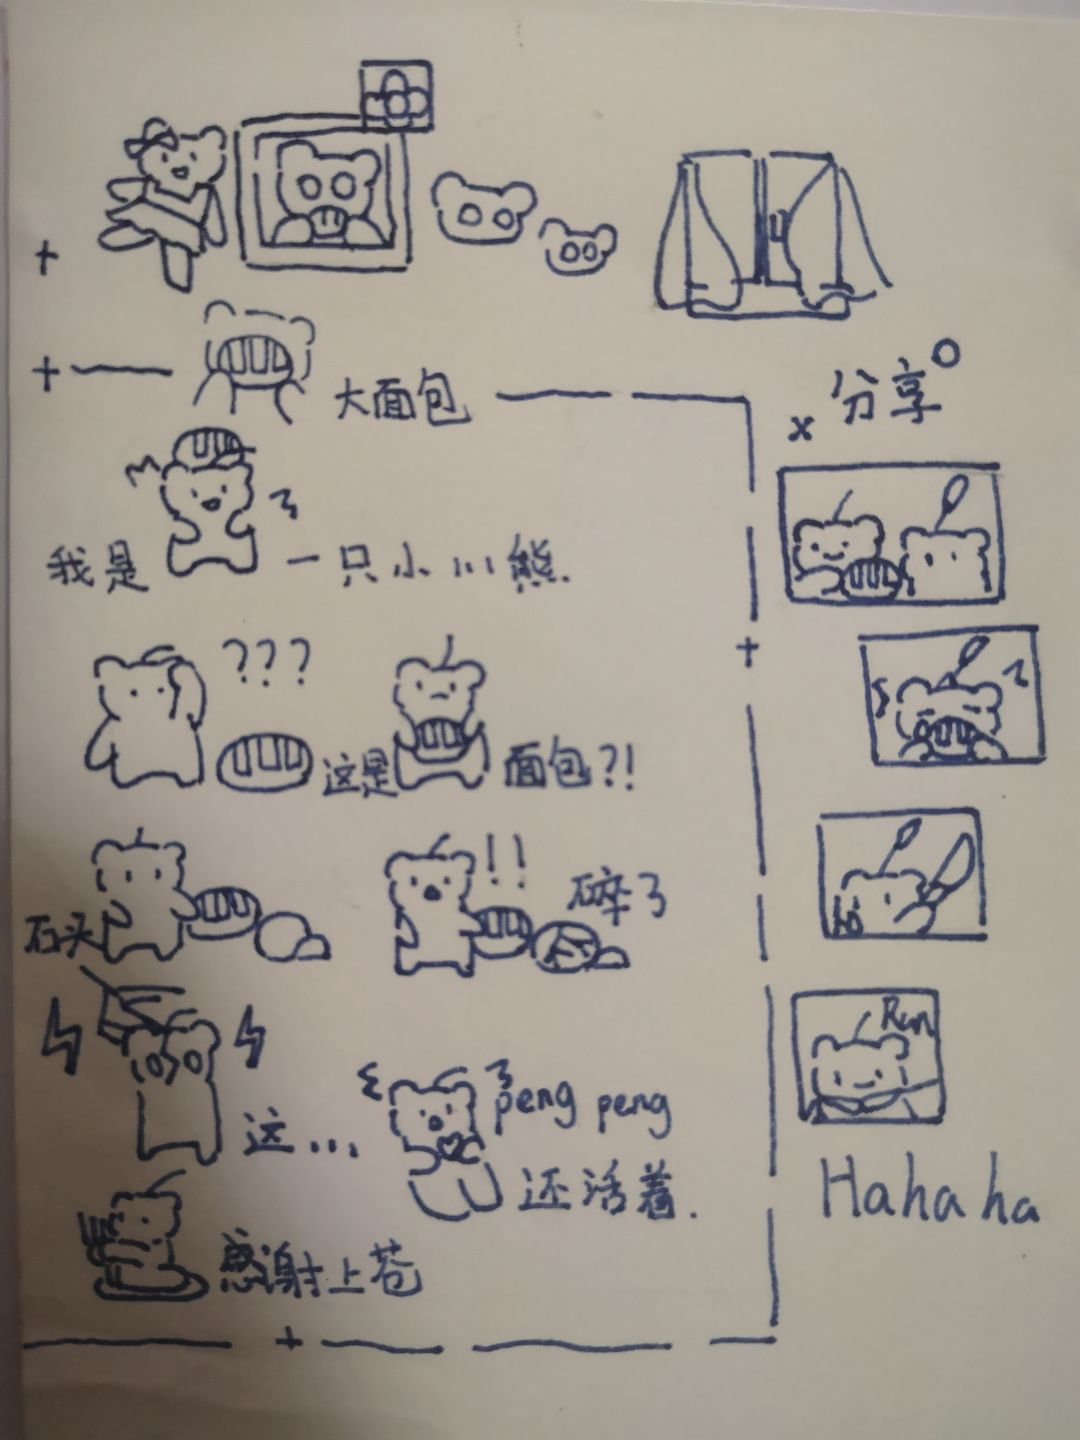 大面包
分享
我是一只小小熊.
???
这是面包?!
石头
!!
碎了
这...
peng peng
还活着.
感谢上苍
Run
Hahaha